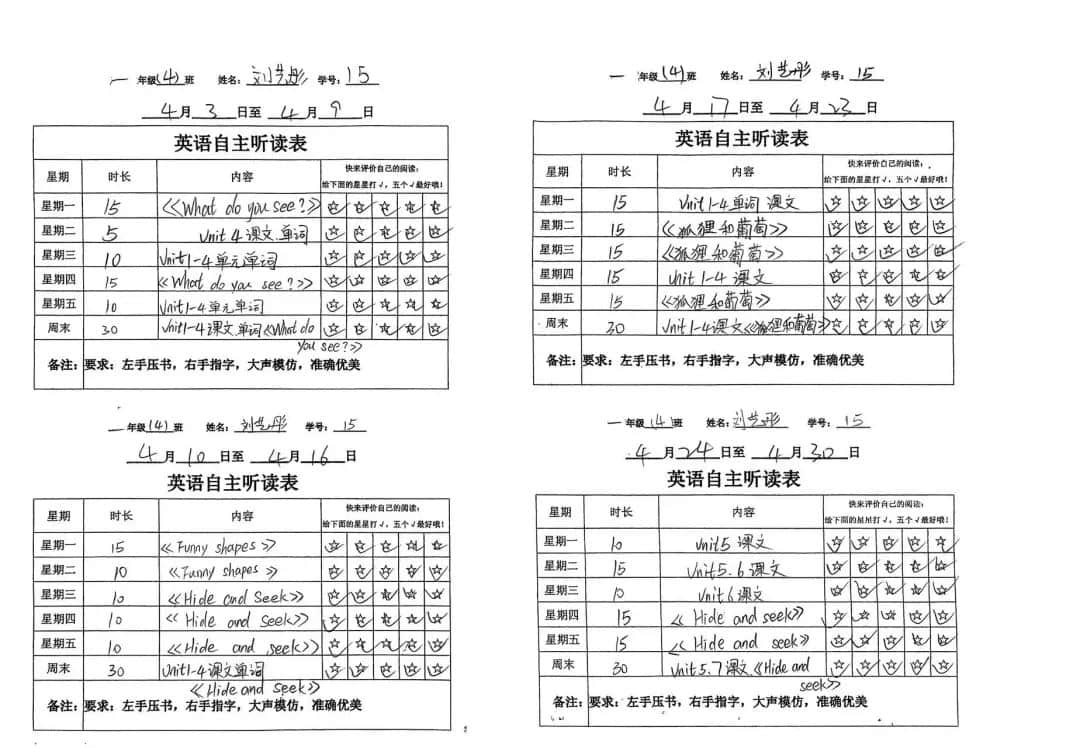 一 年级(4)班 姓名: 刘艺彤 学号: 15
4月 3 日至 4月 9 日
英语自主听读表
星期 时长 内容 快来评价自己的阅读:
给下面的星星打√,五个√最好哦!
星期一 15 《What do you see?》
星期二 5 Unit 4课文.单词
星期三 10 Unit1-4单元单词
星期四 15 《What do you see?》
星期五 10 Unit1-4单元单词
周末 30 Unit1-4课文.单词《What do
you see?》
备注: 要求:左手压书,右手指字,大声模仿,准确优美
一 年级(4)班 姓名: 刘艺彤 学号: 15
4月 10 日至 4月 16 日
英语自主听读表
星期 时长 内容 快来评价自己的阅读:
给下面的星星打√,五个√最好哦!
星期一 15 《Funny shapes》
星期二 10 《Funny shapes》
星期三 10 《Hide and Seek》
星期四 10 《Hide and seek》
星期五 10 《Hide and seek》
周末 30 Unit1-4课文单词
《Hide and seek》
备注: 要求:左手压书,右手指字,大声模仿,准确优美
一 年级(4)班 姓名: 刘艺彤 学号: 15
4月 17 日至 4月 23 日
英语自主听读表
星期 时长 内容 快来评价自己的阅读:
给下面的星星打√,五个√最好哦!
星期一 15 Unit1-4单词 课文
星期二 15 《狐狸和葡萄》
星期三 15 《狐狸和葡萄》
星期四 15 Unit 1-4 课文
星期五 15 《狐狸和葡萄》
周末 30 Unit1-4课文《狐狸和葡萄》
备注: 要求:左手压书,右手指字,大声模仿,准确优美
一 年级(4)班 姓名: 刘艺彤 学号: 15
4月 24 日至 4月 30 日
英语自主听读表
星期 时长 内容 快来评价自己的阅读:
给下面的星星打√,五个√最好哦!
星期一 10 Unit5 课文
星期二 15 Unit5.6课文
星期三 10 Unit6课文
星期四 15 《Hide and seek》
星期五 15 《Hide and seek》
周末 30 Unit5.7课文《Hide and
seek》
备注: 要求:左手压书,右手指字,大声模仿,准确优美